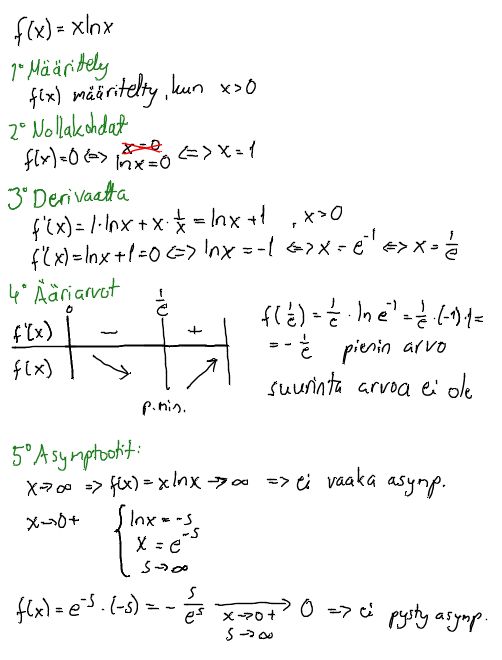 f(x) = xlnx
1° Määrittely
f(x) määritelty, kun x > 0
2° Nollakohdat
f(x) = 0 <=> x = 0
ln x = 0 <=> x = 1
3° Derivaatta
f'(x) = 1·lnx + x·1/x = lnx + 1 , x > 0
f'(x) = lnx + 1 = 0 <=> lnx = -1 <=> x = e^-1 <=> x = 1/e
4° Ääriarvot
0 1/e
f'(x) - +
f(x)
p.min.
f(1/e) = 1/e · ln e^-1 = 1/e · (-1)·1 =
= - 1/e pienin arvo
suurinta arvoa ei ole
5° Asymptootit:
x→∞ => f(x) = x lnx → ∞ => ei vaaka asymp.
x→0+ { lnx = -s
x = e^-s
s→∞
f(x) = e^-s · (-s) = - s/e^s → 0 => ei pysty asymp.
x→0+
s→∞